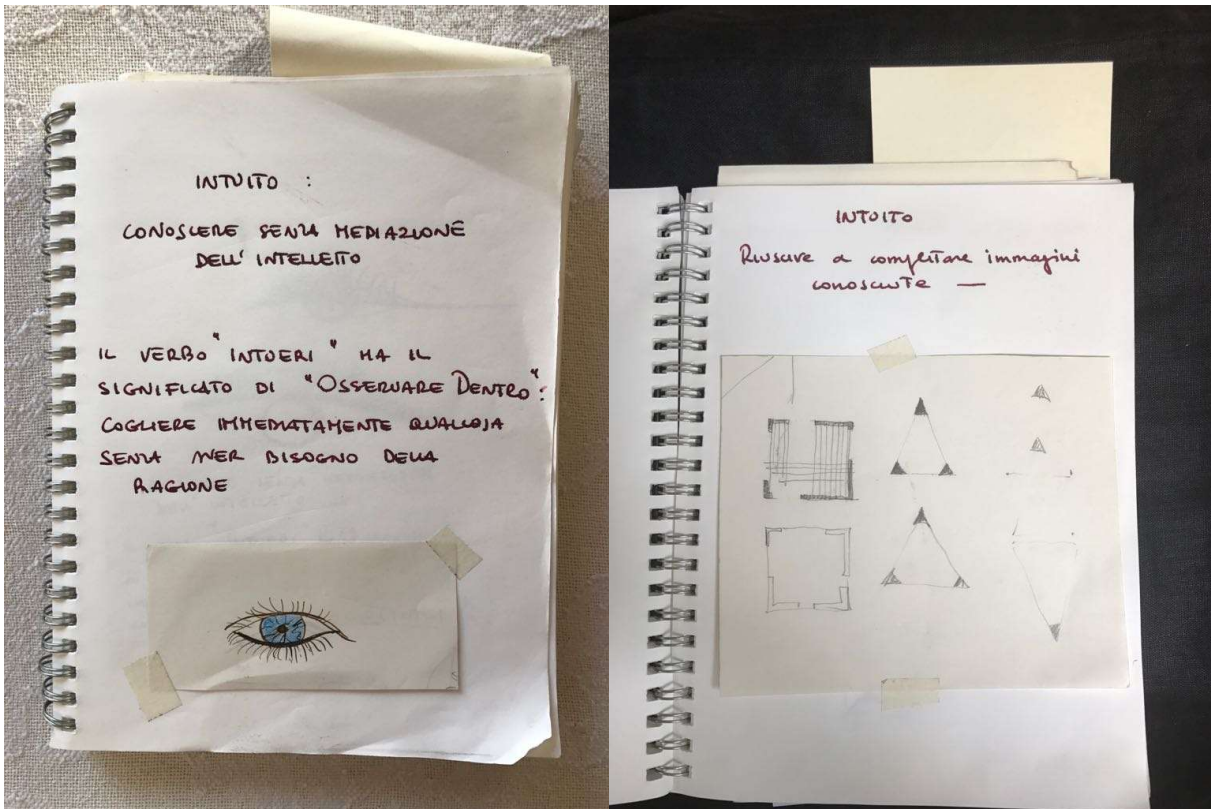 INTUITO :
CONOSCERE SENZA MEDIAZIONE
DELL' INTELLETTO
IL VERBO "INTUERI" HA IL
SIGNIFICATO DI "OSSERVARE DENTRO":
COGLIERE IMMEDIATAMENTE QUALCOSA
SENZA AVER BISOGNO DELLA
RAGIONE
INTUITO
Riuscire a completare immagini
conosciute —